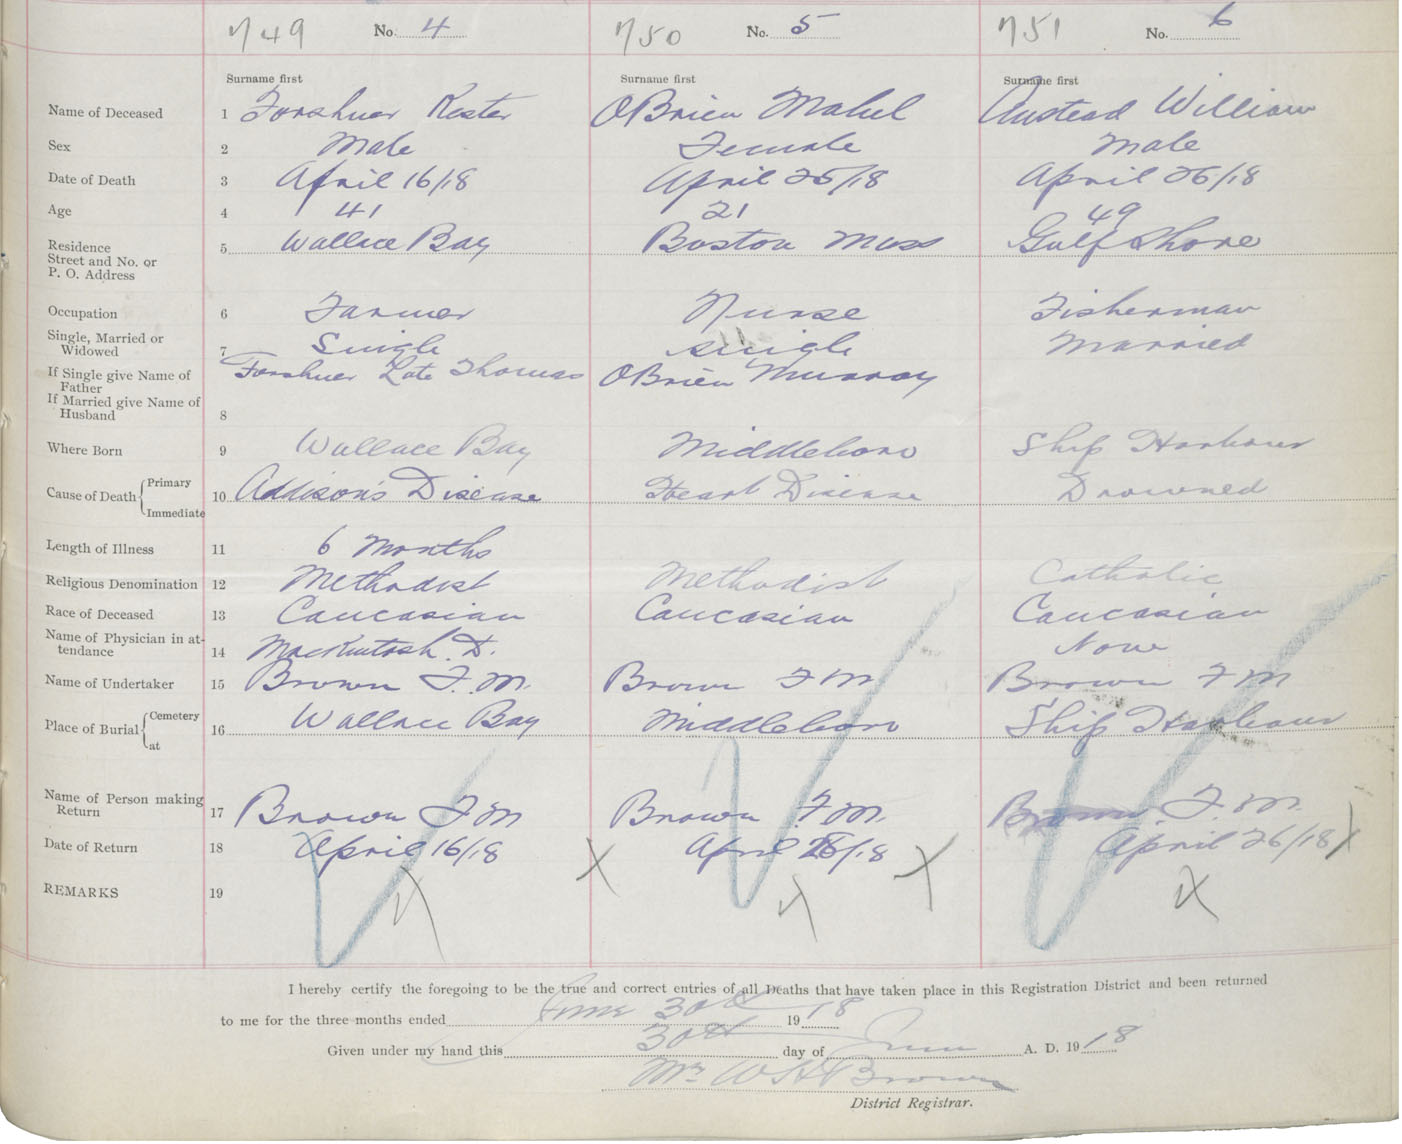 749 No. 4 750 No. 5 751 No. 6
Surname first Surname first Surname first
Name of Deceased 1 Forshner Kester OBrien Mabel Anstead William
Sex 2 Male Female Male
Date of Death 3 April 16/18 April 25/18 April 26/18
Age 4 41 21 49
Residence Street and No. or P. O. Address 5 Wallace Bay Boston Mass Gulf Shore
Occupation 6 Farmer Nurse Fisherman
Single, Married or Widowed 7 Single single Married
If Single give Name of Father Forshner Late Thomas OBrien Murray
If Married give Name of Husband 8
Where Born 9 Wallace Bay Middleboro Ship Harbour
Cause of Death { Primary Immediate 10 Addison's Disease Heart Disease Drowned
Length of Illness 11 6 Months
Religious Denomination 12 Methodist Methodist Catholic
Race of Deceased 13 Caucasian Caucasian Caucasian
Name of Physician in attendance 14 MacKintosh D. None
Name of Undertaker 15 Brown F. M. Brown F M Brown F M
Place of Burial { Cemetery at 16 Wallace Bay Middleboro Ship Harbour
Name of Person making Return 17 Brown F M Brown F. M. Brown F. M.
Date of Return 18 April 16/18 April /18 April 26/18
REMARKS 19
I hereby certify the foregoing to be the true and correct entries of all Deaths that have taken place in this Registration District and been returned
to me for the three months ended June 30th 1918
Given under my hand this 30th day of June A. D. 1918
Mrs W H Brown
District Registrar.